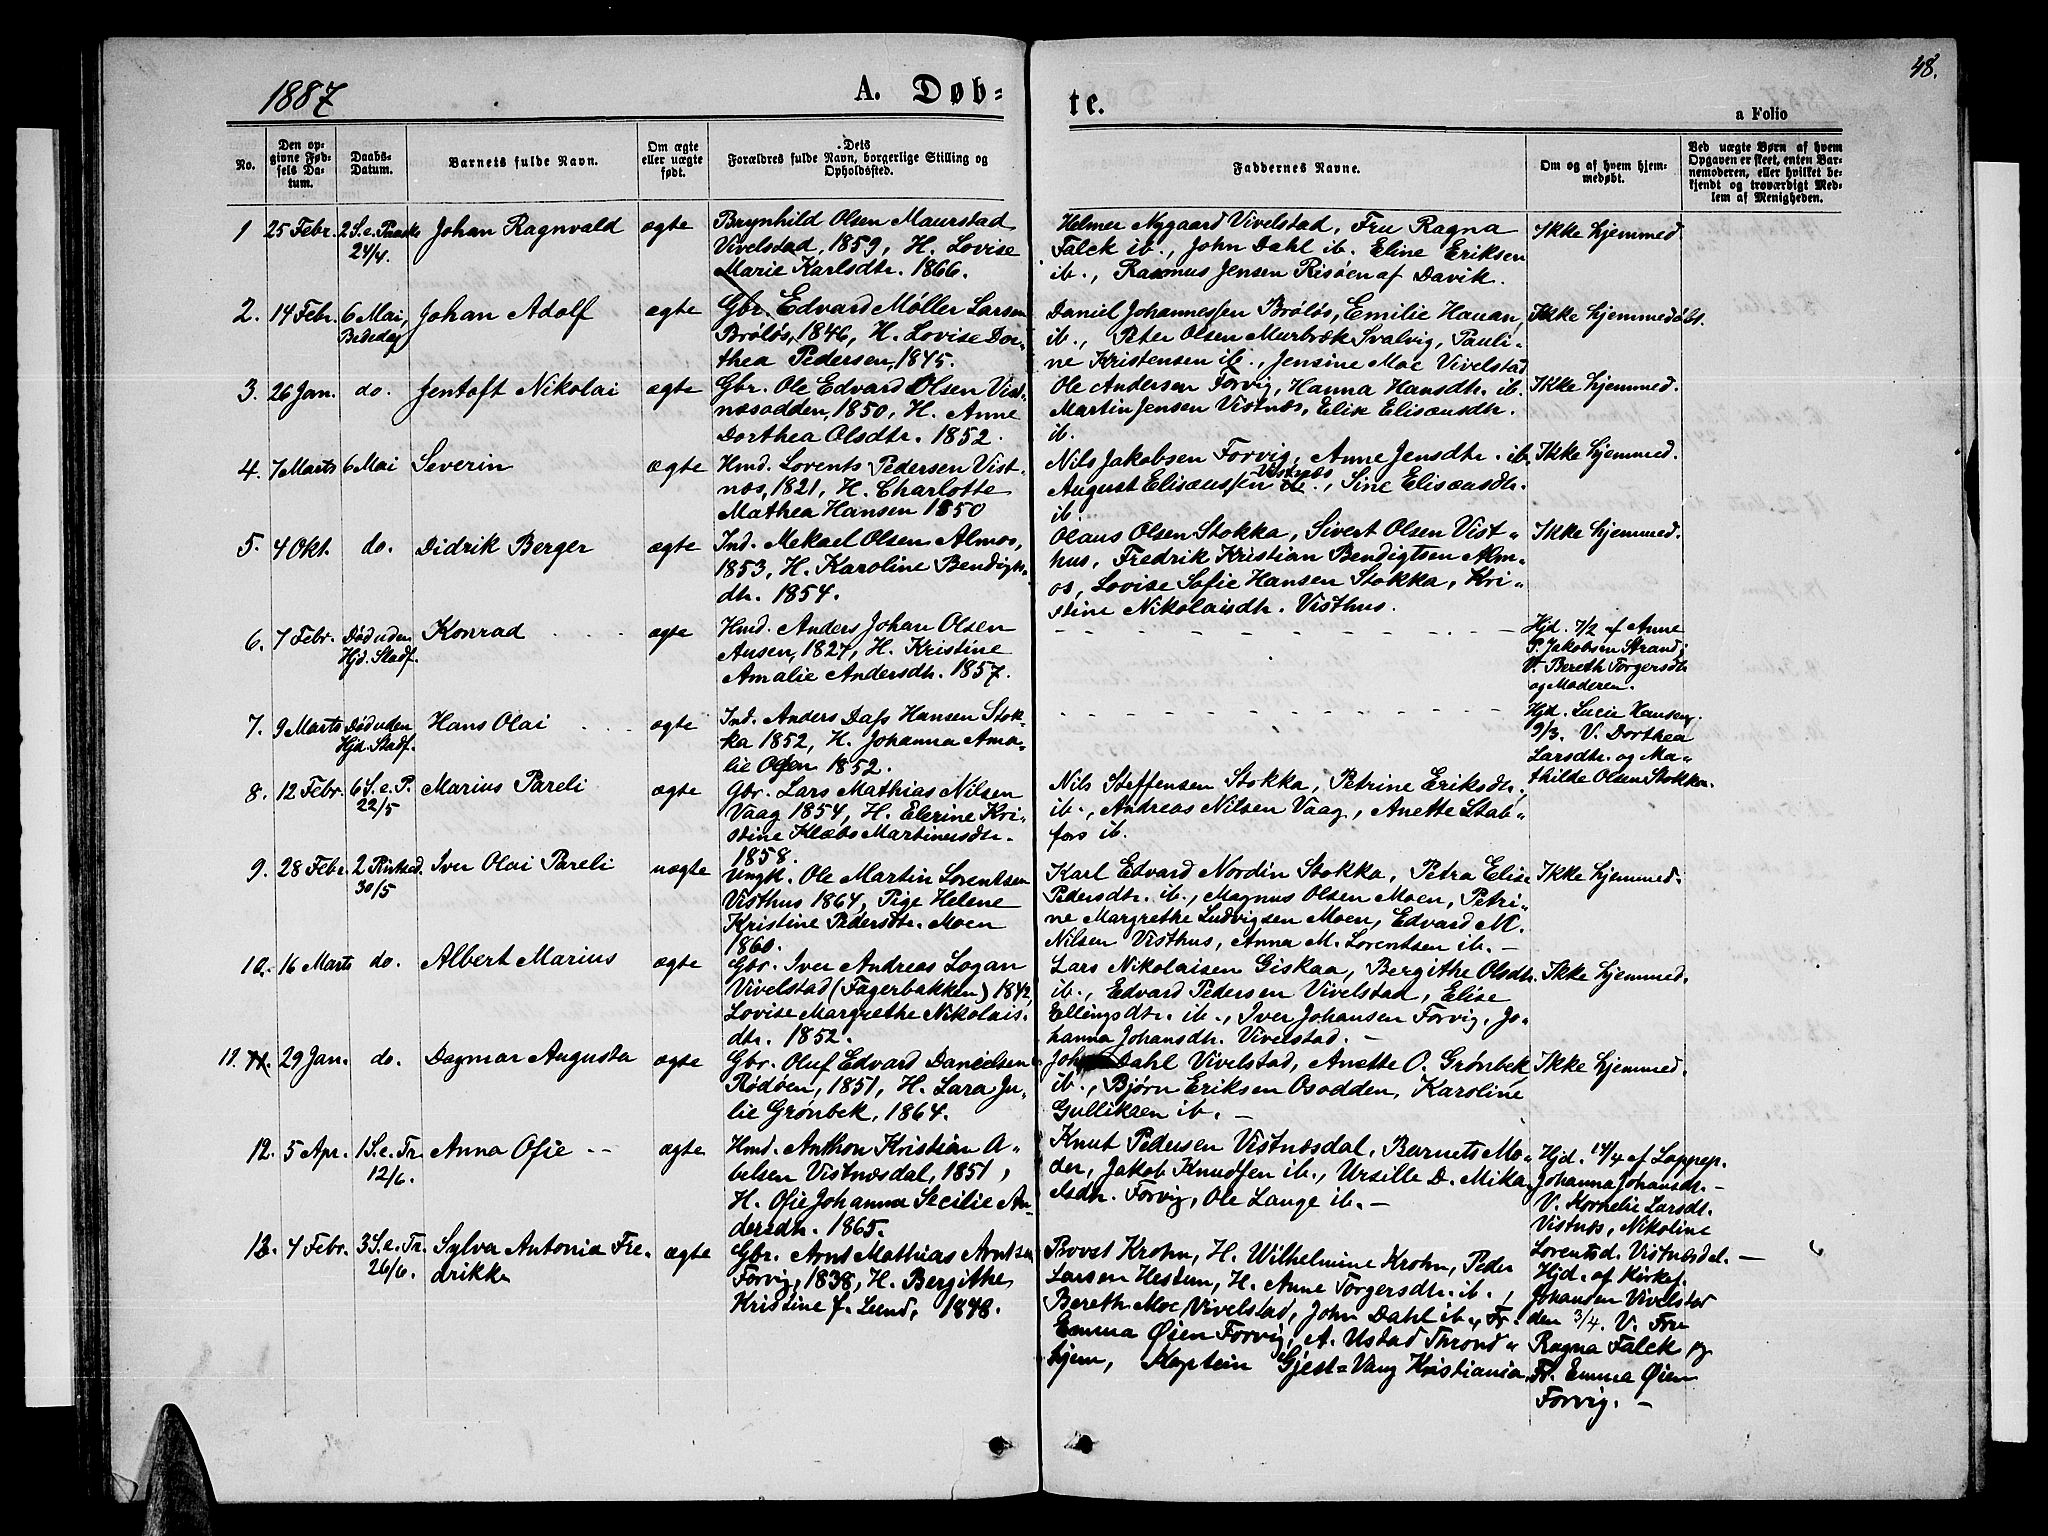 1887
A. Døb=
te.
48.
a Folio
No.
Den op=
givne Fød=
sels Da=
tum.
Daabs=
Datum.
Barnets fulde Navn.
Om ægte
eller uægte
født.
Dets
Forældres fulde Navn, borgerlige Stilling og
Opholdssted.
Faddernes Navne.
Om og af hvem hjem=
medøbt.
Ved uægte Børn af hvem
Opgaven er skeet, enten Bar=
nemoderen, eller hvilket be=
kjendt og troværdigt Med=
lem af Menigheden.
1 25 Febr. 2 S. e. Paaske
24/4.
Johan Ragnvald
ægte
Brynhild Olsen Maurstad
Vivelstad, 1859, H. Lovise
Marie Karlsdtr. 1866.
Helmer Nygaard Vivelstad, Fru Ragna
Falck ib., John Dahl ib. Eline Eriksen
ib., Rasmus Jensen Risøen af Davik.
Ikke hjemmed.
2. 14 Febr. 6 Mai,
Bededag
Johan Adolf
ægte
Gbr. Edvard Møller Larsen
Brøløs, 1846, H. Lovise Dor-
thea Pedersen, 1845.
Daniel Johannessen Brøløs, Emilie Hanan,
ib., Peter Olsen Murbræk Svalvig, Pauli-
ne Kristensen ib., Jensine Moe Vivelstad
Ikke hjemmedøbt.
3. 26 Jan. do. Jentoft Nikolai
ægte
Gbr. Ole Edvard Olsen Vist-
næsodden, 1850, H. Anne
Dorthea Olsdtr. 1852.
Ole Andersen Forvig, Hanna Hansdtr. ib.
Martin Jensen Vistnæs, Elise Elisæusdtr.
ib.
Ikke hjemmed.
4. 7 Marts 6 Mai Severin
ægte
Hmd. Lorents Pedersen Vist-
næs, 1821, H. Charlotte
Mathea Hansen 1850
Nils Jakobsen Forvig, Anne Jensdtr. ib.
Vistnæs
August Elisæussen ib., Sine Elisæusdtr.
ib.
Ikke hjemmed.
5. 4 Okt. do. Didrik Berger
ægte
Ind. Mekael Olsen Almos,
1853, H. Karoline Bendigts-
dtr. 1854.
Olaus Olsen Stokka, Sivert Olsen Vist-
hus, Fredrik Kristian Bendigtsen Alm-
os, Lovise Sofie Hansen Stokka, Kri-
stine Nikolaisdtr. Visthus.
Ikke hjemmed.
6. 7 Febr. Død uden
Hjd. Stadf.
Konrad
ægte
Hmd. Anders Johan Olsen
Ausen, 1827, H. Kristine
Amalie Andersdtr. 1857.
Hjd. 7/2 af Anne
P. Jakobsen Strand;
V. Bereth Torgersdtr.
og Moderen.
7. 9 Marts Død uden
Hjd. Stadf.
Hans Olai
ægte
Ind. Anders Dass Hansen Stok-
ka 1852, H. Johanna Ama-
lie Olsen 1852.
Hjd. Lucie Hansen
9/3. V. Dorthea
Larsdtr. og Ma-
thilde Olsen Stokka.
8. 12 Febr. 6 S. e. P.
22/5
Marius Pareli
ægte
Gbr. Lars Mathias Nilsen
Vaag 1854, H. Elerine Kri-
stine Klæbo Martinusdtr.
1858.
Nils Steffensen Stokka, Petrine Eriksdtr.
ib., Andreas Nilsen Vaag, Anette Stab-
fors ib.
9. 28 Febr. 2 Pintsed.
30/5
Iver Olai Pareli
uægte
Ungk. Ole Martin Lorentsen
Visthus 1864, Pige Helene
Kristine Pedersdtr. Moen
1860.
Karl Edvard Nordin Stokka, Petra Elise
Pedersdtr. ib., Magnus Olsen Moen, Petri-
ne Margrethe Ludvigsen Moen, Edvard M.
Nilsen Visthus, Anna M. Lorentsen ib. -
Ikke hjemmed.
10. 16 Marts do. Albert Marius
ægte
Gbr. Iver Andreas Logan
Vivelstad (Fagerbakken) 1842,
Lovise Margrethe Nikolais-
dtr. 1852.
Lars Nikolaisen Giskaa, Bergithe Olsdtr.
ib., Edvard Pedersen Vivelstad, Elise
Ellingsdtr. ib., Iver Johansen Forvig, Jo-
hanna Johansdtr. Vivelstad. -
Ikke hjemmed.
11. 29 Jan. do. Dagmar Augusta
ægte
Gbr. Oluf Edvard Danielsen
Rødøen, 1851, H. Lara Ju-
lie Grønbek, 1864.
John Dahl Vivelstad, Anette O. Grønbek
ib., Bjørn Eriksen Osodden, Karoline
Gulliksen ib. -
Ikke hjemmed.
12. 5 Apr. 1 S. e. Tr.
12/6.
Anna Ofie --
ægte
Hmd. Anthon Kristian A-
belsen Vistnæsdal, 1851,
H. Ofie Johanna Secilie An-
dersdtr. 1865.
Knut Pedersen Vistnæsdal, Barnets Mo-
der, Jakob Knudsen ib., Ursille D. Mika-
elsdtr. Forvig, Ole Lange ib. -
Hjd. 14/4 af Lappep.
Johanna Johansdtr. -
V. Kornelie Larsdt.
Vistnæs, Nikoline
Lorentsd. Vistnæsdal. -
13. 4 Febr. 3 S. e. Tr.
26/6.
Sylva Antonia Fre-
drikke
ægte
Gbr. Arnt Mathias Arntsen
Forvig, 1838, H. Bergithe
Kristine f. Lund, 1848.
Bovst Krohn, H. Wilhelmine Krohn, Peder
Larsen Hestun, H. Anne Torgersdtr. ib.,
Bereth Moe Vivelstad, John Dahl ib., Fr.
Emma Øien Forvig, A. Ustad Thrond-
hjem, Kaptein Gjest=Vang Kristiania.
Hjd. af Kirkes.
Johansen Vivelstad
den 3/4. V. Fru
Ragna Falck og
Fr. Emma Øien
Forvig. -